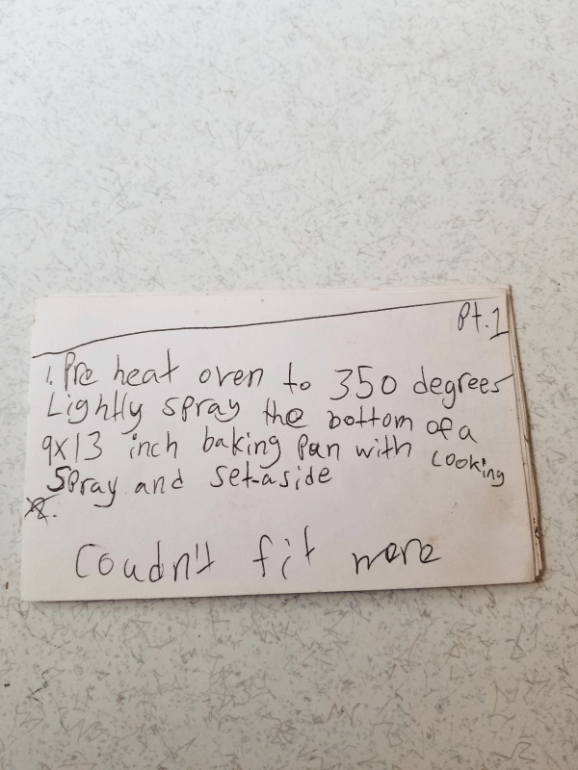 Pt.1
1. Pre heat oven to 350 degrees
Lightly spray the bottom of a
9x13 inch baking pan with cooking
Spray and set-aside
2.
Coudn't fit more